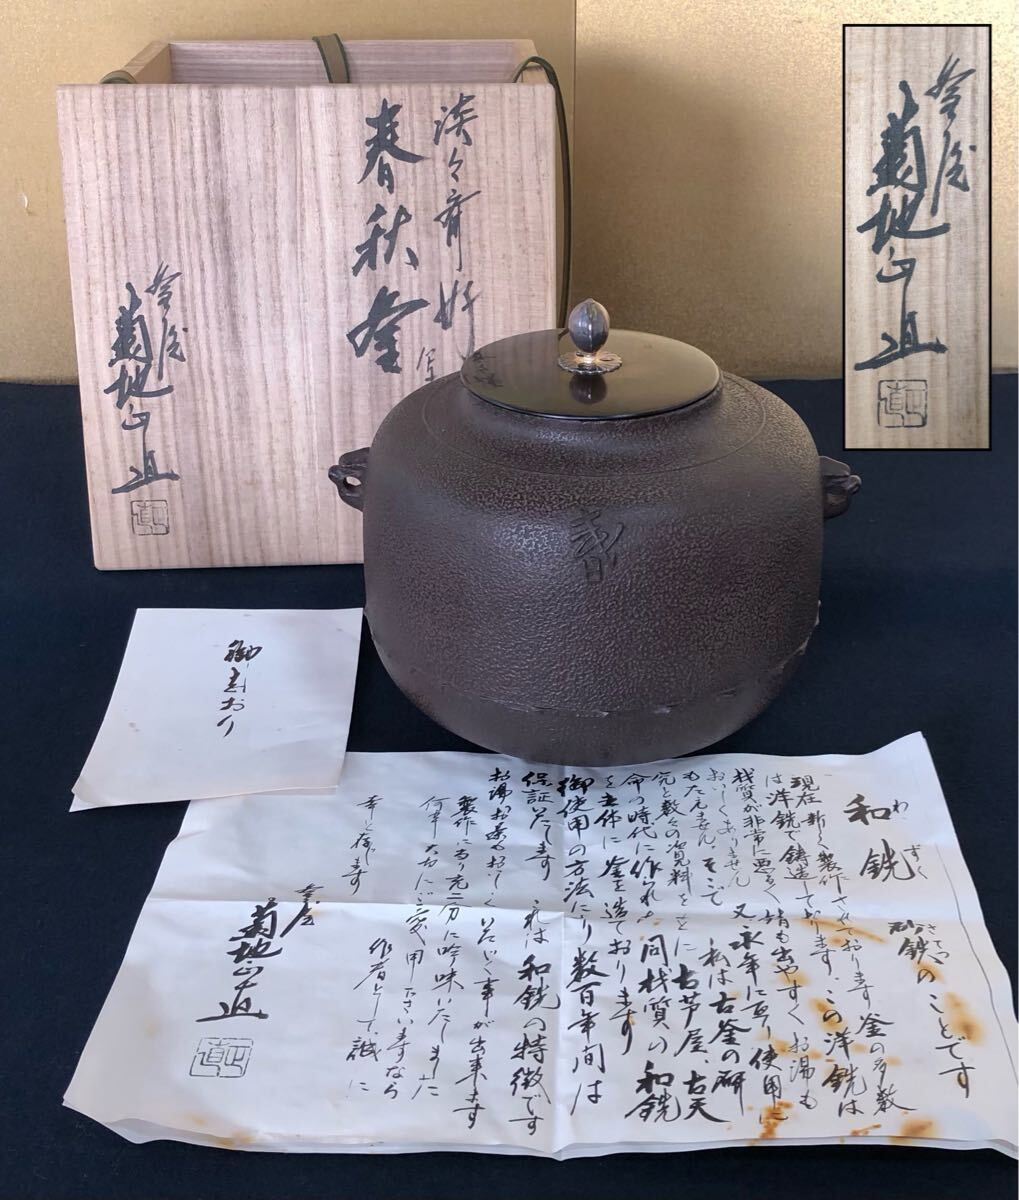 淡々斎好
写
春秋釜
釜屋
菊地正直
正直
釜屋
菊地正直
正直
春
御しおり
和銑
わずく
砂鉄のことです
さてつ
現在新しく製作されております釜の多数
は洋銑で鋳造しております、この洋銑は
材質が非常に悪るく錆も出やすくお湯も
おいしくありません 又永年に亘り使用に
もたえません、そこで 私は古釜の研
究と数々の資料をもとに古芦屋、古天
命の時代に作られた同材質の和銑
を主体に釜を造ております
御使用の方法により数百年間は
保証いたします これは和銑の特徴です
お湯お茶もおいしくいただく事が出来ます
製作にあり充二分に吟味いたしました
何卒大切にご愛用下さいますなら
作者として誠に
幸と存じます
釜屋
菊地正直
正直